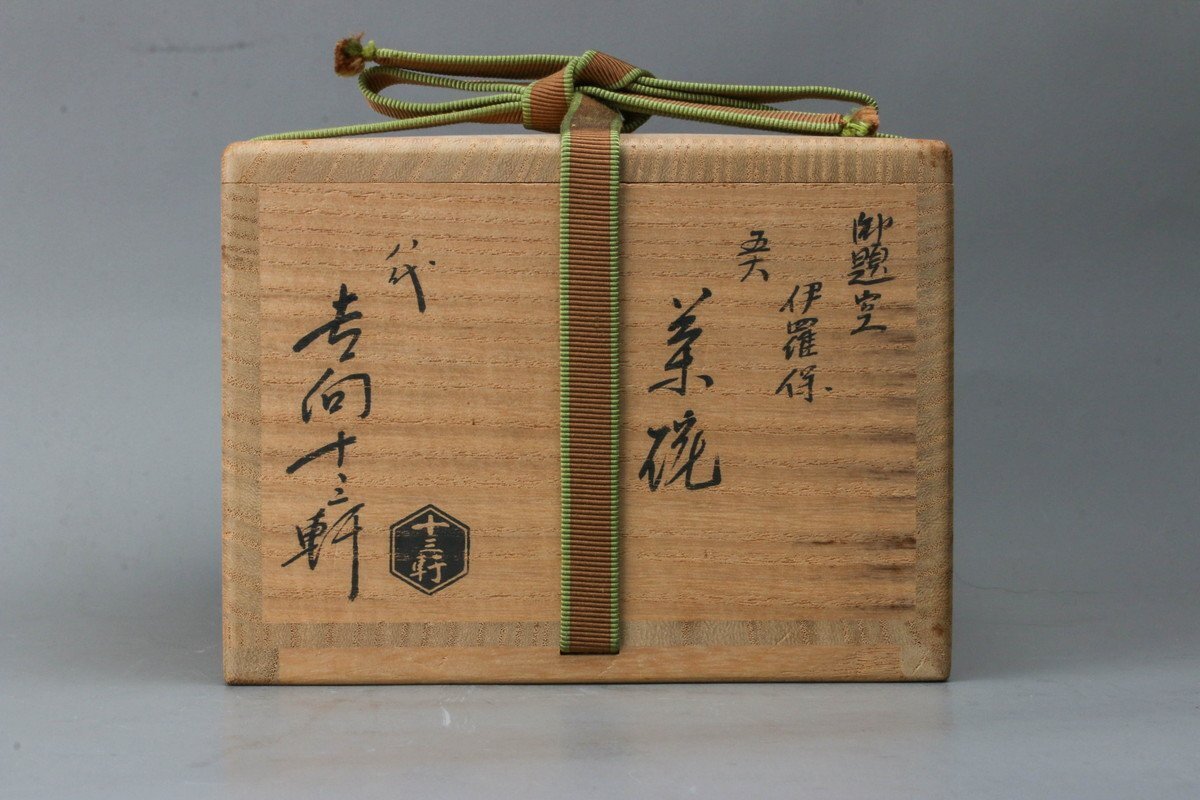 御題空
伊羅保
茶碗
八代
吉向十三軒
十三軒